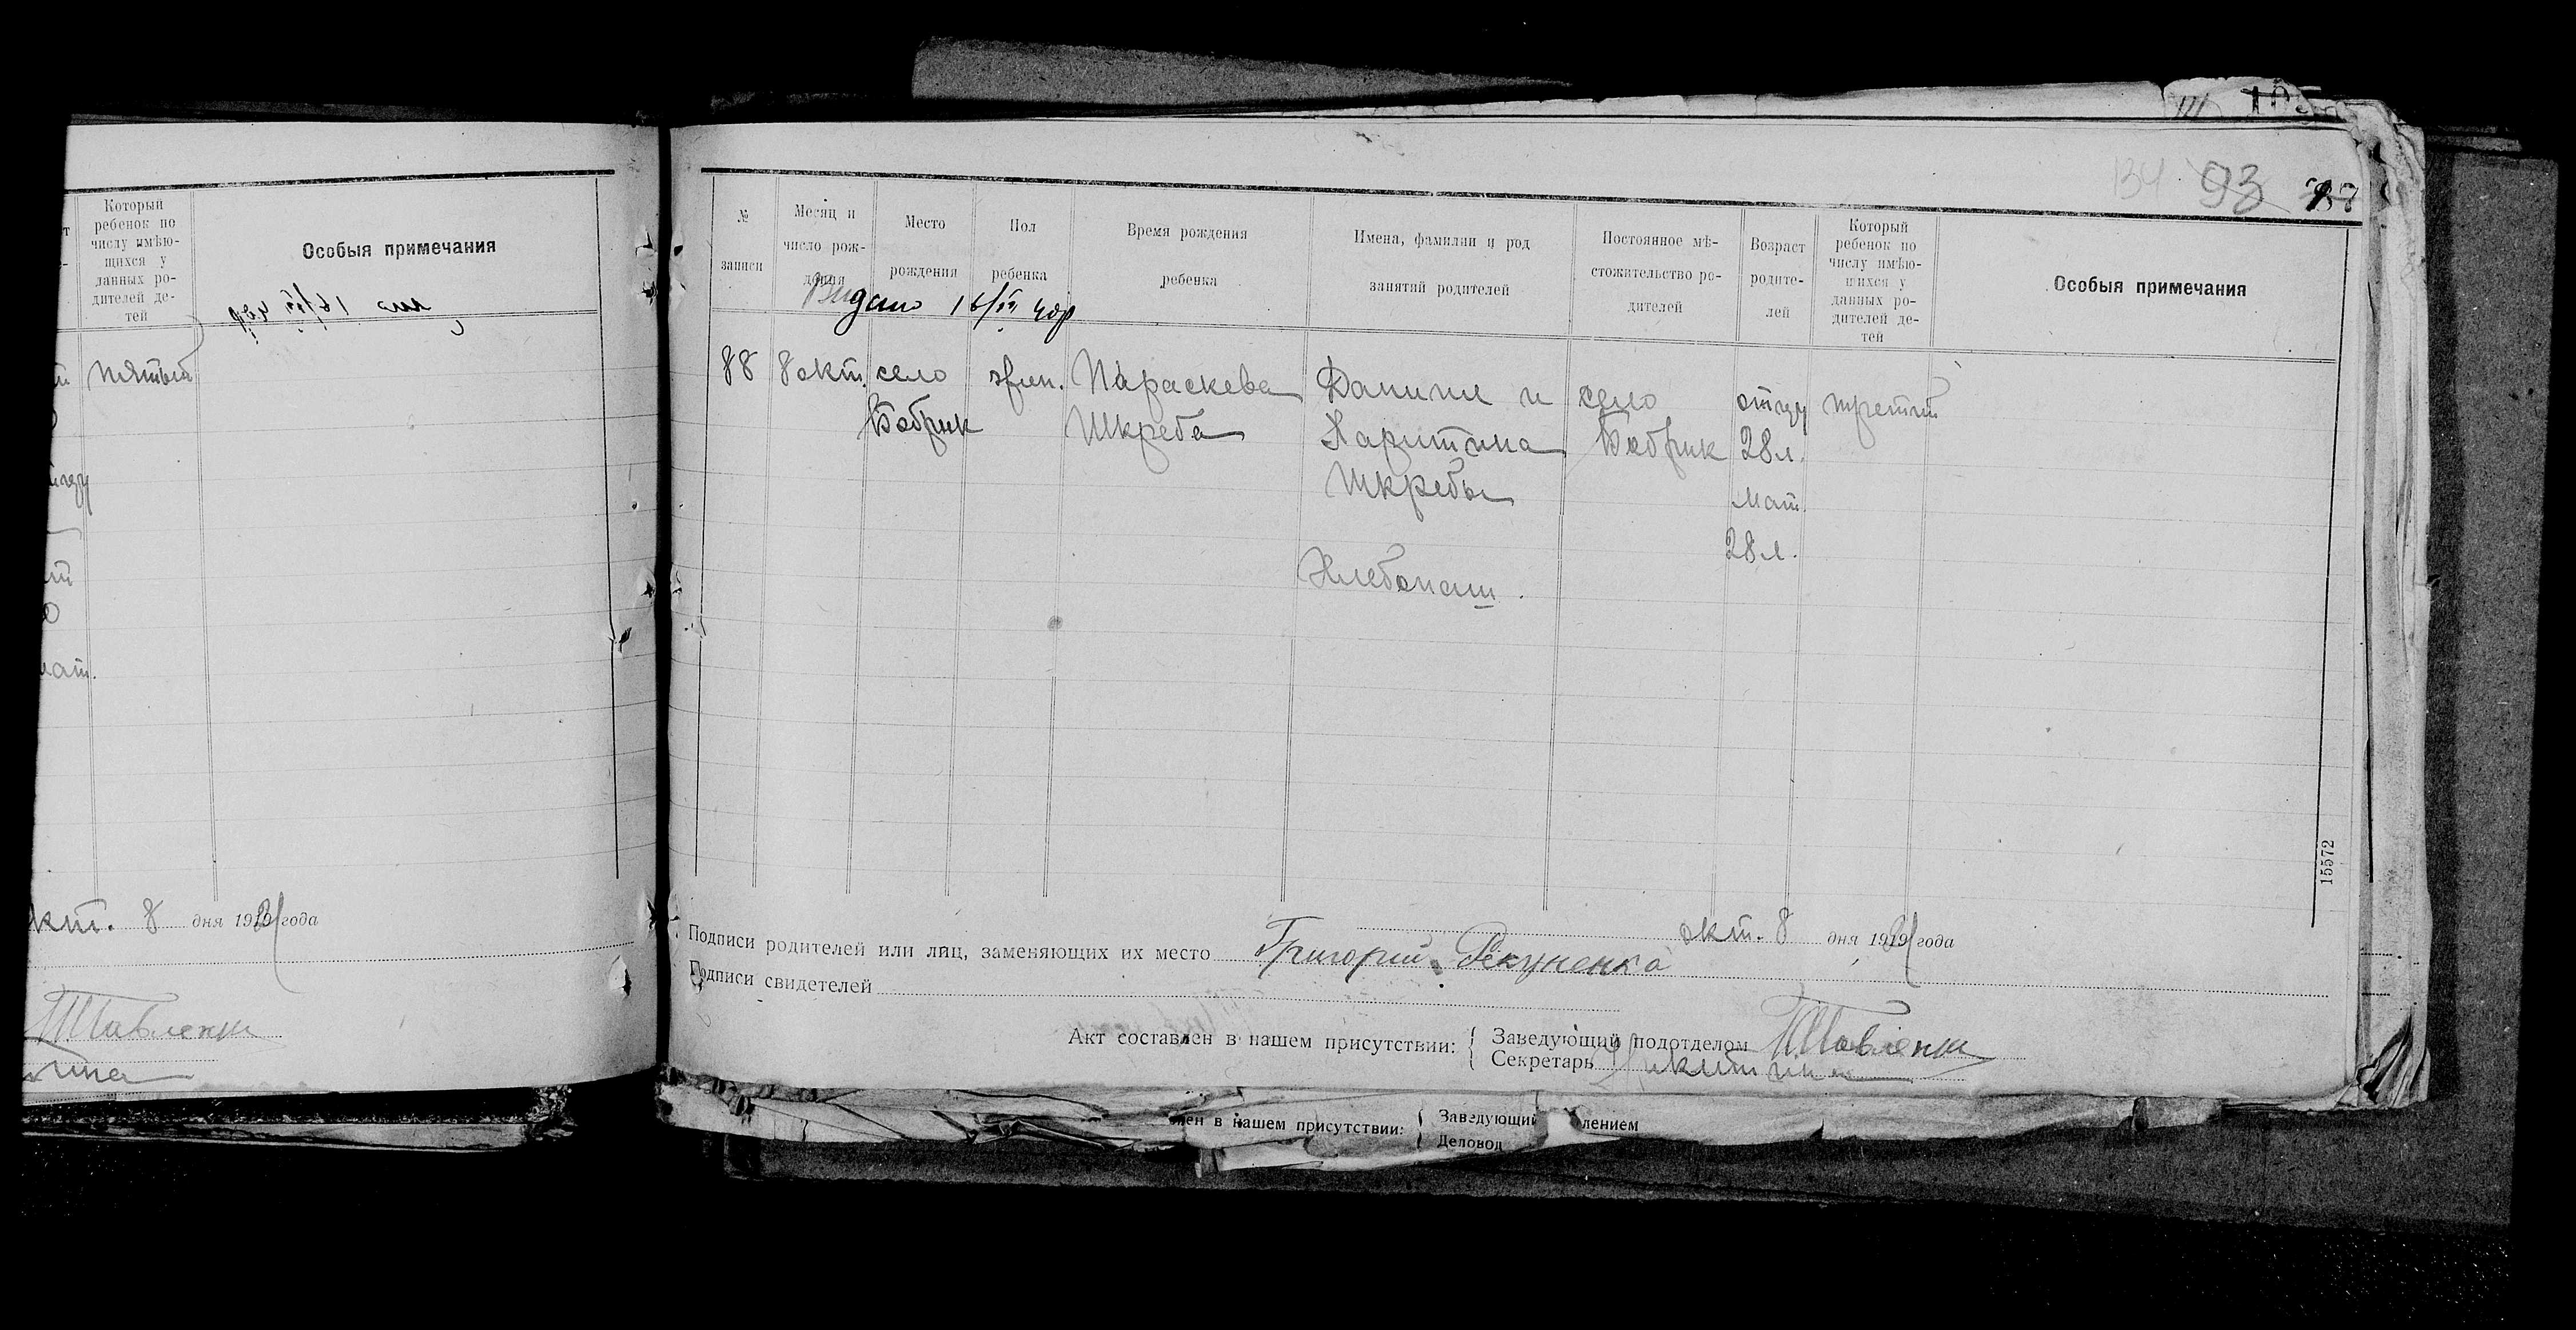 т
Который
ребенок по
числу имѣю-
щихся у
данных ро-
дителей де-
тей
Особыя примечания
пятый
отцу
мат.
окт. 8 дня 1921 года
Павленко
105
134 93
№
записи
Месяц и
число рож-
дения
Место
рождения
Пол
ребенка
Время рождения
ребенка
Имена, фамилии и род
занятий родителей
Постоянное мѣ-
стожительство ро-
дителей
Возраст
родите-
лей
Который
ребенок по
числу имѣю-
щихся у
данных ро-
дителей де-
тей
Особыя примечания
Видано 16/III 40р
88 8 окт. село жен. Параскева Данило и село отцу третий
Бобрик Шкреба Харитина Бобрик 28 л.
Шкребы мат.
28 л.
Хлебопаш.
15572
окт. 8 дня 1921 года
Подписи родителей или лиц, заменяющих их место Григорий Рекуненко
Подписи свидетелей
Акт составлен в нашем присутствии: { Заведующий подотделом Павленко
Секретарь Никитина
лен в нашем присутствии: { Заведующий лением
Деловод